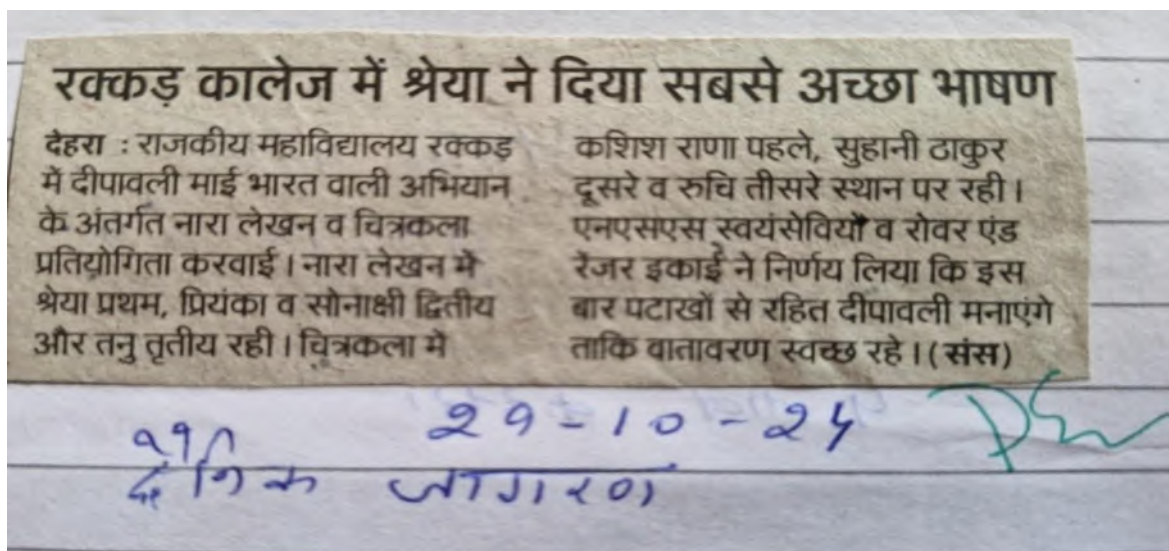 रक्कड़ कालेज में श्रेया ने दिया सबसे अच्छा भाषण
देहरा : राजकीय महाविद्यालय रक्कड़
में दीपावली माई भारत वाली अभियान
के अंतर्गत नारा लेखन व चित्रकला
प्रतियोगिता करवाई। नारा लेखन में
श्रेया प्रथम, प्रियंका व सोनाक्षी द्वितीय
और तनु तृतीय रही। चित्रकला में
कशिश राणा पहले, सुहानी ठाकुर
दूसरे व रुचि तीसरे स्थान पर रही।
एनएसएस स्वयंसेवियों व रोवर एंड
रेंजर इकाई ने निर्णय लिया कि इस
बार पटाखों से रहित दीपावली मनाएंगे
ताकि वातावरण स्वच्छ रहे। (संस)
29-10-24
दैनिक जागरण